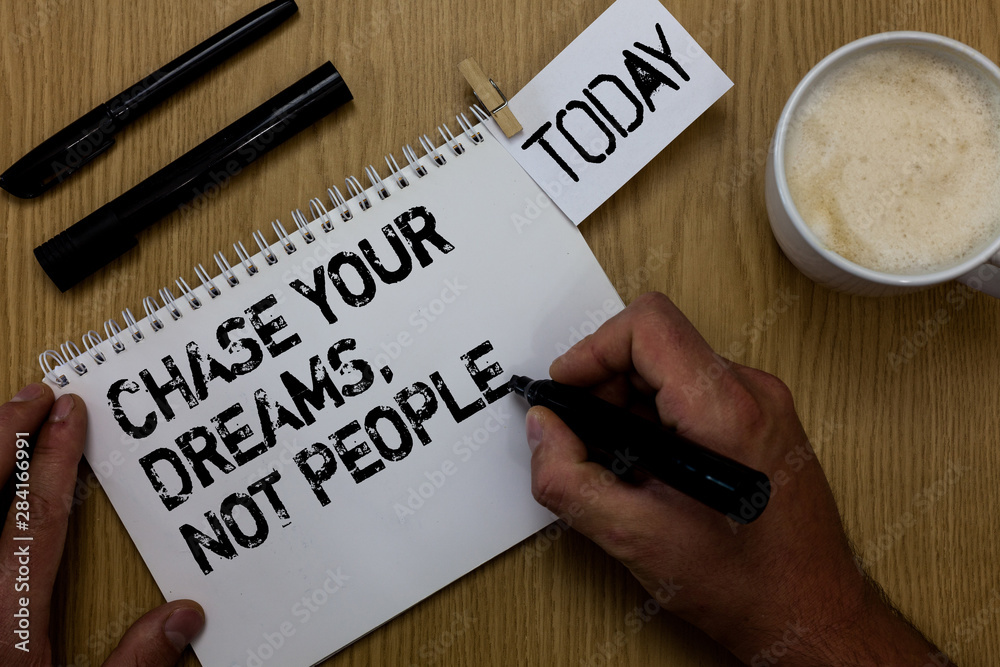 TODAY
CHASE YOUR
DREAMS,
NOT PEOPLE
Adobe Stock | #284166991